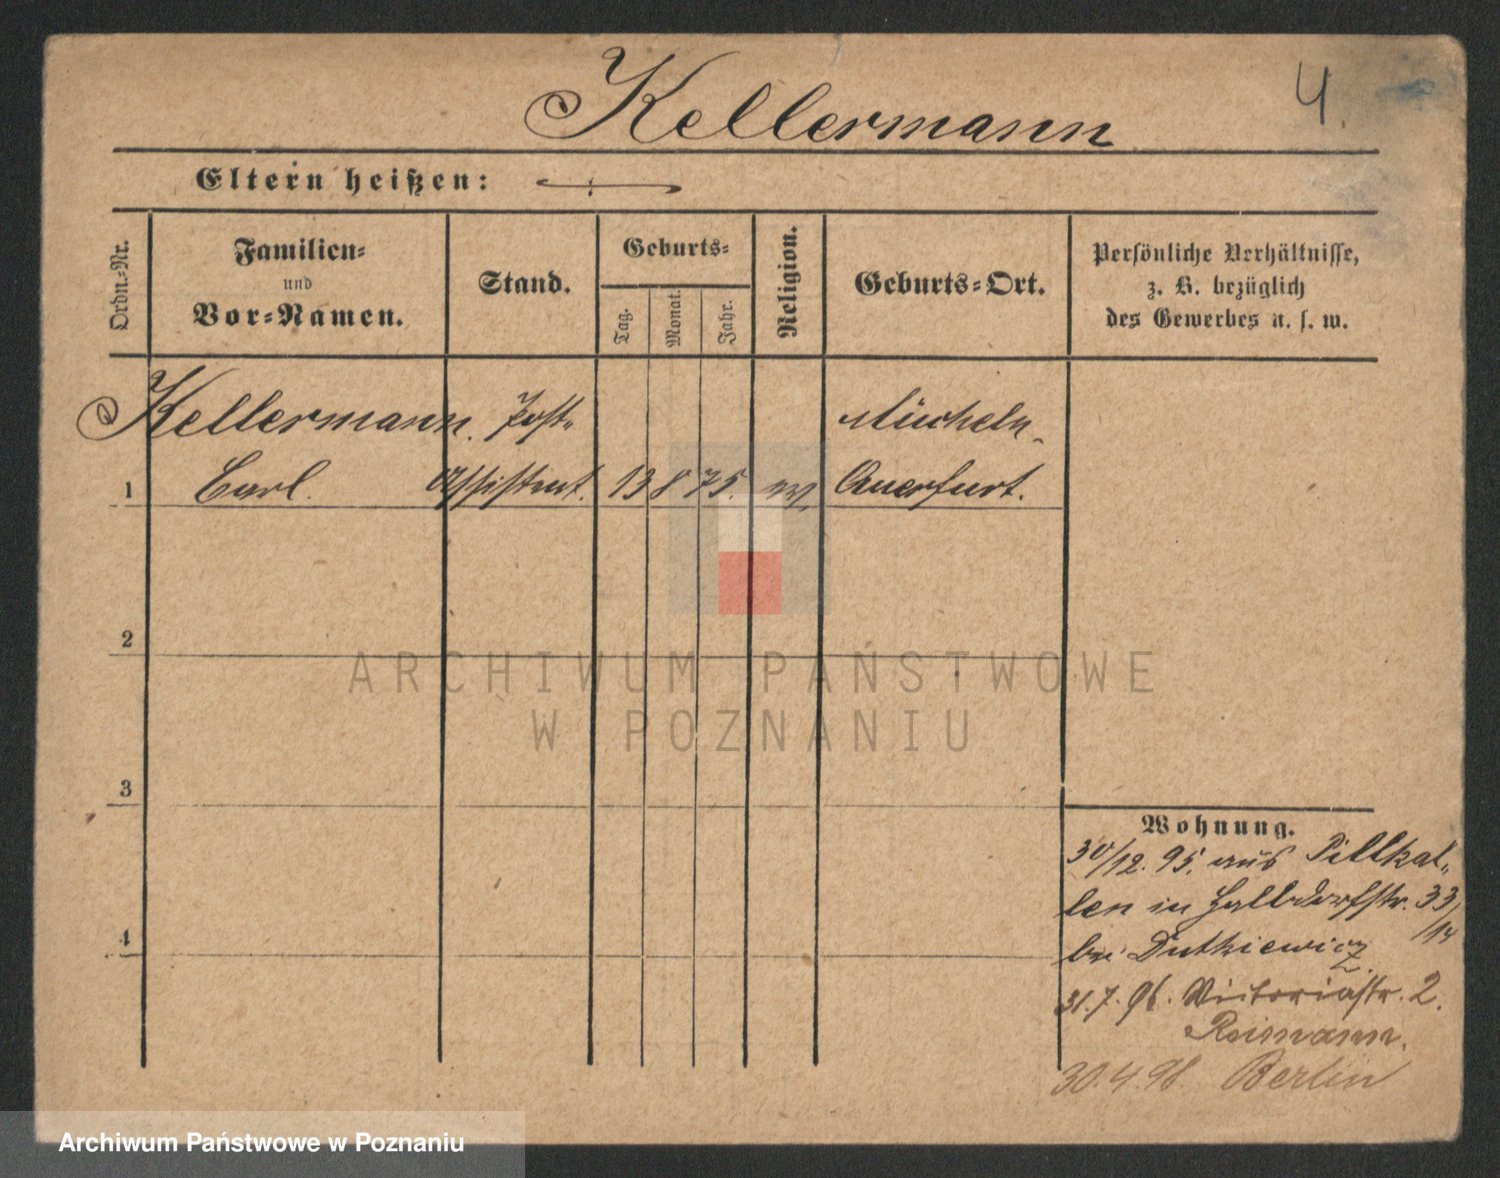 Kellermann
4.
Eltern heißen:
Ordn.-Nr.
Familien-
und
Vor-Namen.
Stand.
Geburts-
Tag.
Monat.
Jahr.
Religion.
Geburts-Ort.
Persönliche Verhältnisse,
z. B. bezüglich
des Gewerbes u. s. w.
Kellermann. Post- Mücheln-
1 Carl. Assistent. 13 8 75. ev. Querfurt.
2
3
4
Wohnung.
30/12. 95. aus Pillkal-
len in Halbdorfstr. 33/
/14
bei Dutkiewicz
31.7.96. Victoriastr. 2.
Reimann.
30.4.98 Berlin
ARCHIWUM PAŃSTWOWE
W POZNANIU
Archiwum Państwowe w Poznaniu